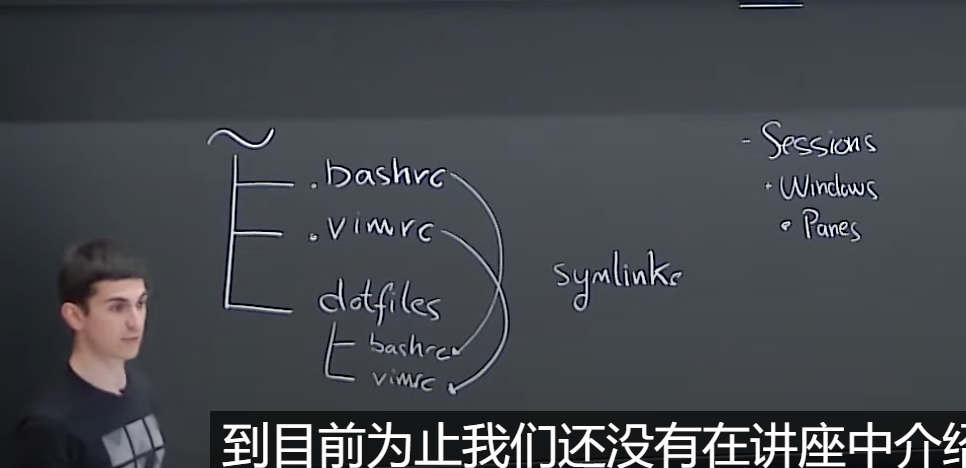 ~
.bashrc
.vimrc
dotfiles
bashrc
vimrc
symlinks
- Sessions
· Windows
• Panes
到目前为止我们还没有在讲座中介绍